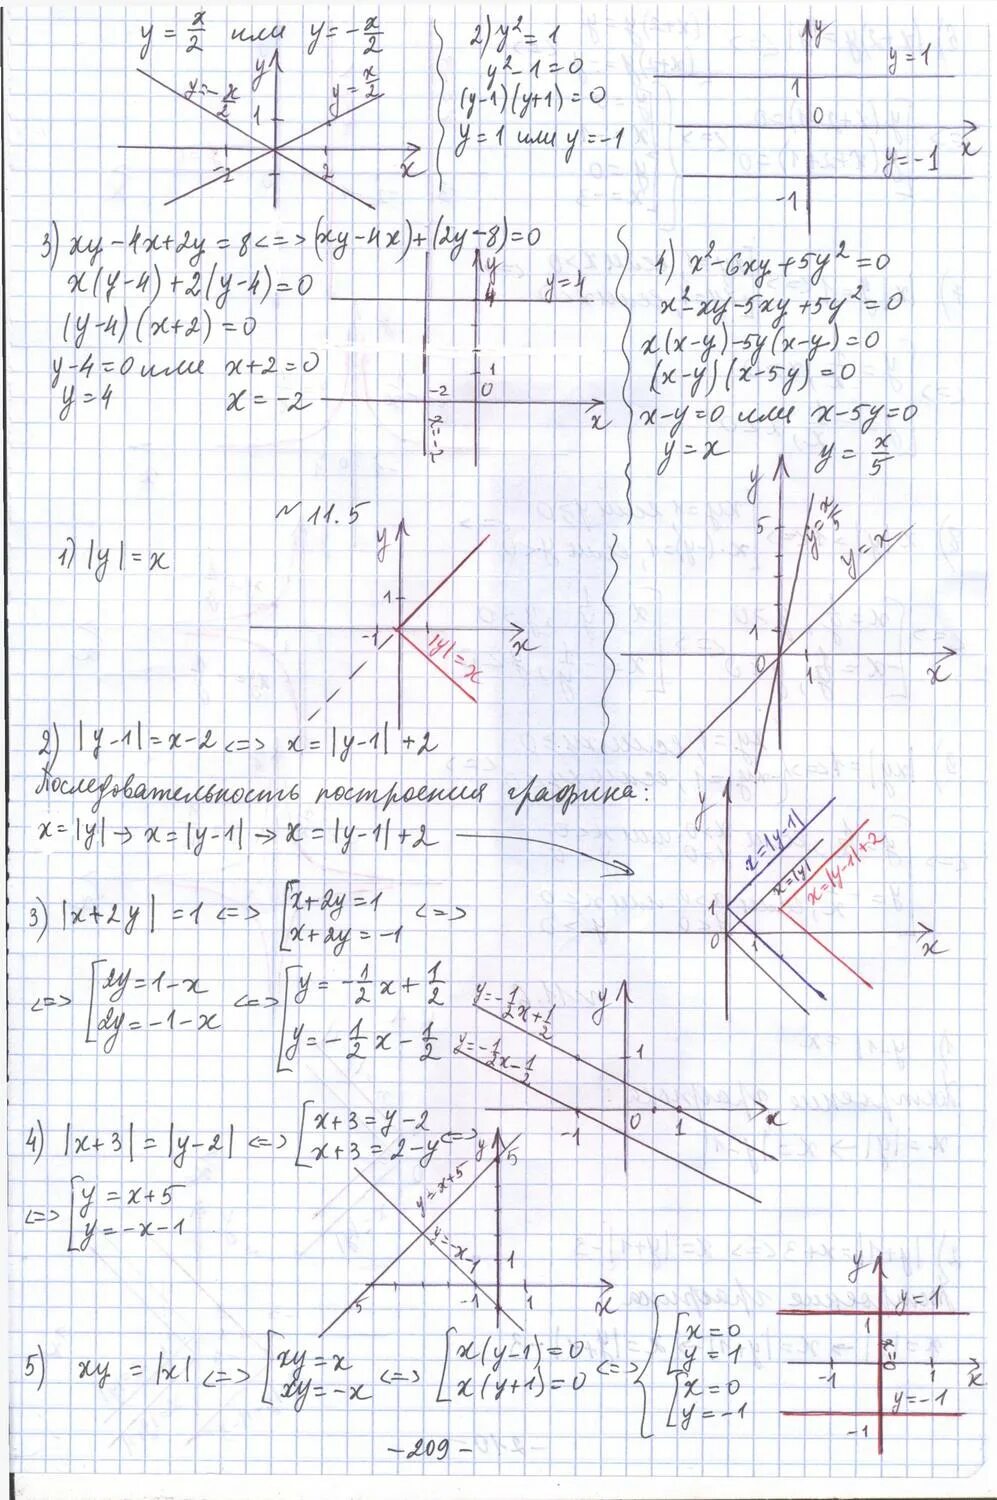 y = x/2 или y = -x/2
y
y = -x/2
y = x/2
1
-2
2
x
2) y² = 1
y² - 1 = 0
(y-1)(y+1) = 0
y = 1 или y = -1
y
y = 1
1
0
x
y = -1
-1
3) xy - 4x + 2y = 8 <=> (xy - 4x) + (2y - 8) = 0
x(y-4) + 2(y-4) = 0
(y-4)(x+2) = 0
y-4 = 0 или x+2 = 0
y = 4 x = -2
y
4
y = 4
1
-2
0
x
x = -2
4) x² - 6xy + 5y² = 0
x² - xy - 5xy + 5y² = 0
x(x-y) - 5y(x-y) = 0
(x-y)(x-5y) = 0
x-y = 0 или x-5y = 0
y = x y = x/5
y
5
y = x/5
y = x
1
0
1
x
№ 11.5
1) |y| = x
y
1
-1
x
|y| = x
2) |y-1| = x-2 <=> x = |y-1| + 2
Последовательность построения графика:
x = |y| → x = |y-1| → x = |y-1| + 2
y
x = |y-1|
x = |y|
x = |y-1| + 2
1
0
1
x
3) |x+2y| = 1 <=> [x+2y = 1 <=>
[x+2y = -1
<=> [2y = 1-x <=> [y = -1/2 x + 1/2
[2y = -1-x [y = -1/2 x - 1/2
y
y = -1/2 x + 1/2
y = -1/2 x - 1/2
1
-1
0
1
x
4) |x+3| = |y-2| <=> [x+3 = y-2
[x+3 = 2-y <=>
<=> [y = x+5
[y = -x-1
y
5
y = x+5
y = -x-1
1
5
-1
1
x
5) xy = |x| <=> [xy = x <=> [x(y-1) = 0 <=> { [x = 0
[xy = -x [x(y+1) = 0 [y = 1
[x = 0
[y = -1
y
y = 1
1
x = 0
-1
1
x
y = -1
-1
- 209 -